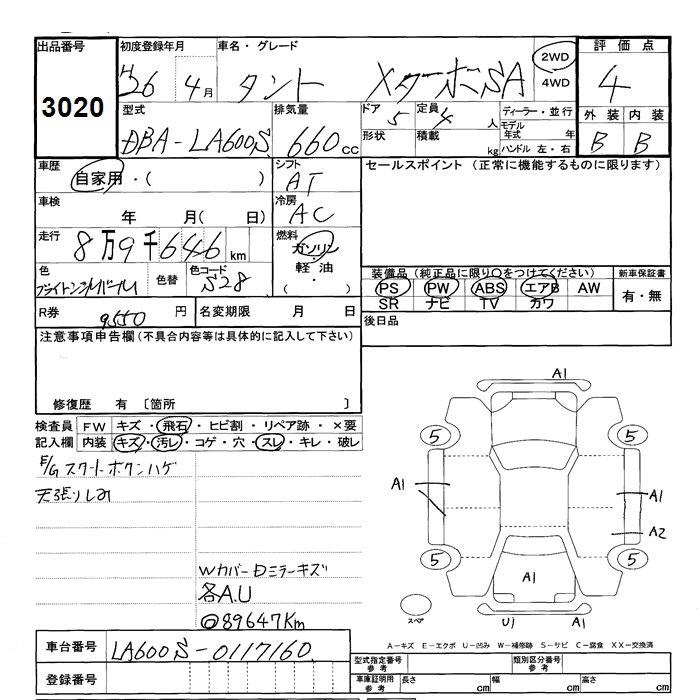 出品番号 初度登録年月 車名・グレード 2WD 評価点
3020 H26 4月 タント XターボSA 4WD 4
型式 排気量 ドア 定員 ディーラー・並行 外装 内装
DBA-LA600S 660cc 5 4人 モデル年式 年 B B
形状 積載 kg ハンドル 左・右
車歴 シフト セールスポイント(正常に機能するものに限ります)
自家用・( ) AT
車検 冷房
年 月( 日) AC
走行 燃料
8万9千646km ガソリン・軽油・
色 色替 色コード ( ・ ) 装備品(純正品に限り○をつけてください) 新車保証書
ブライトンシルバーM S28 PS PW ABS エアB AW 有・無
SR ナビ TV カワ
R券 9550円 名変期限 月 日 後日品
注意事項申告欄(不具合内容等は具体的に記入して下さい)
修復歴 有 〔箇所 〕
検査員 FW キズ・飛石・ヒビ割・リペア跡・×要
記入欄 内装 キズ・汚レ・コゲ・穴・スレ・キレ・破レ
E/Gスタートボタンハゲ
天張りしみ
WカバーDミラーキズ
各A.U
◎89647Km
A1
5 5
A1 A1
A2
5 5
A1
スペア U1 A1
A-キズ E-エクボ U-凹み W-補修跡 S-サビ C-腐食 XX-交換済
車台番号 LA600S-0117160
登録番号
型式指定番号 参考 類別区分番号 参考
車庫証明用 参考 長さ cm 幅 cm 高さ cm